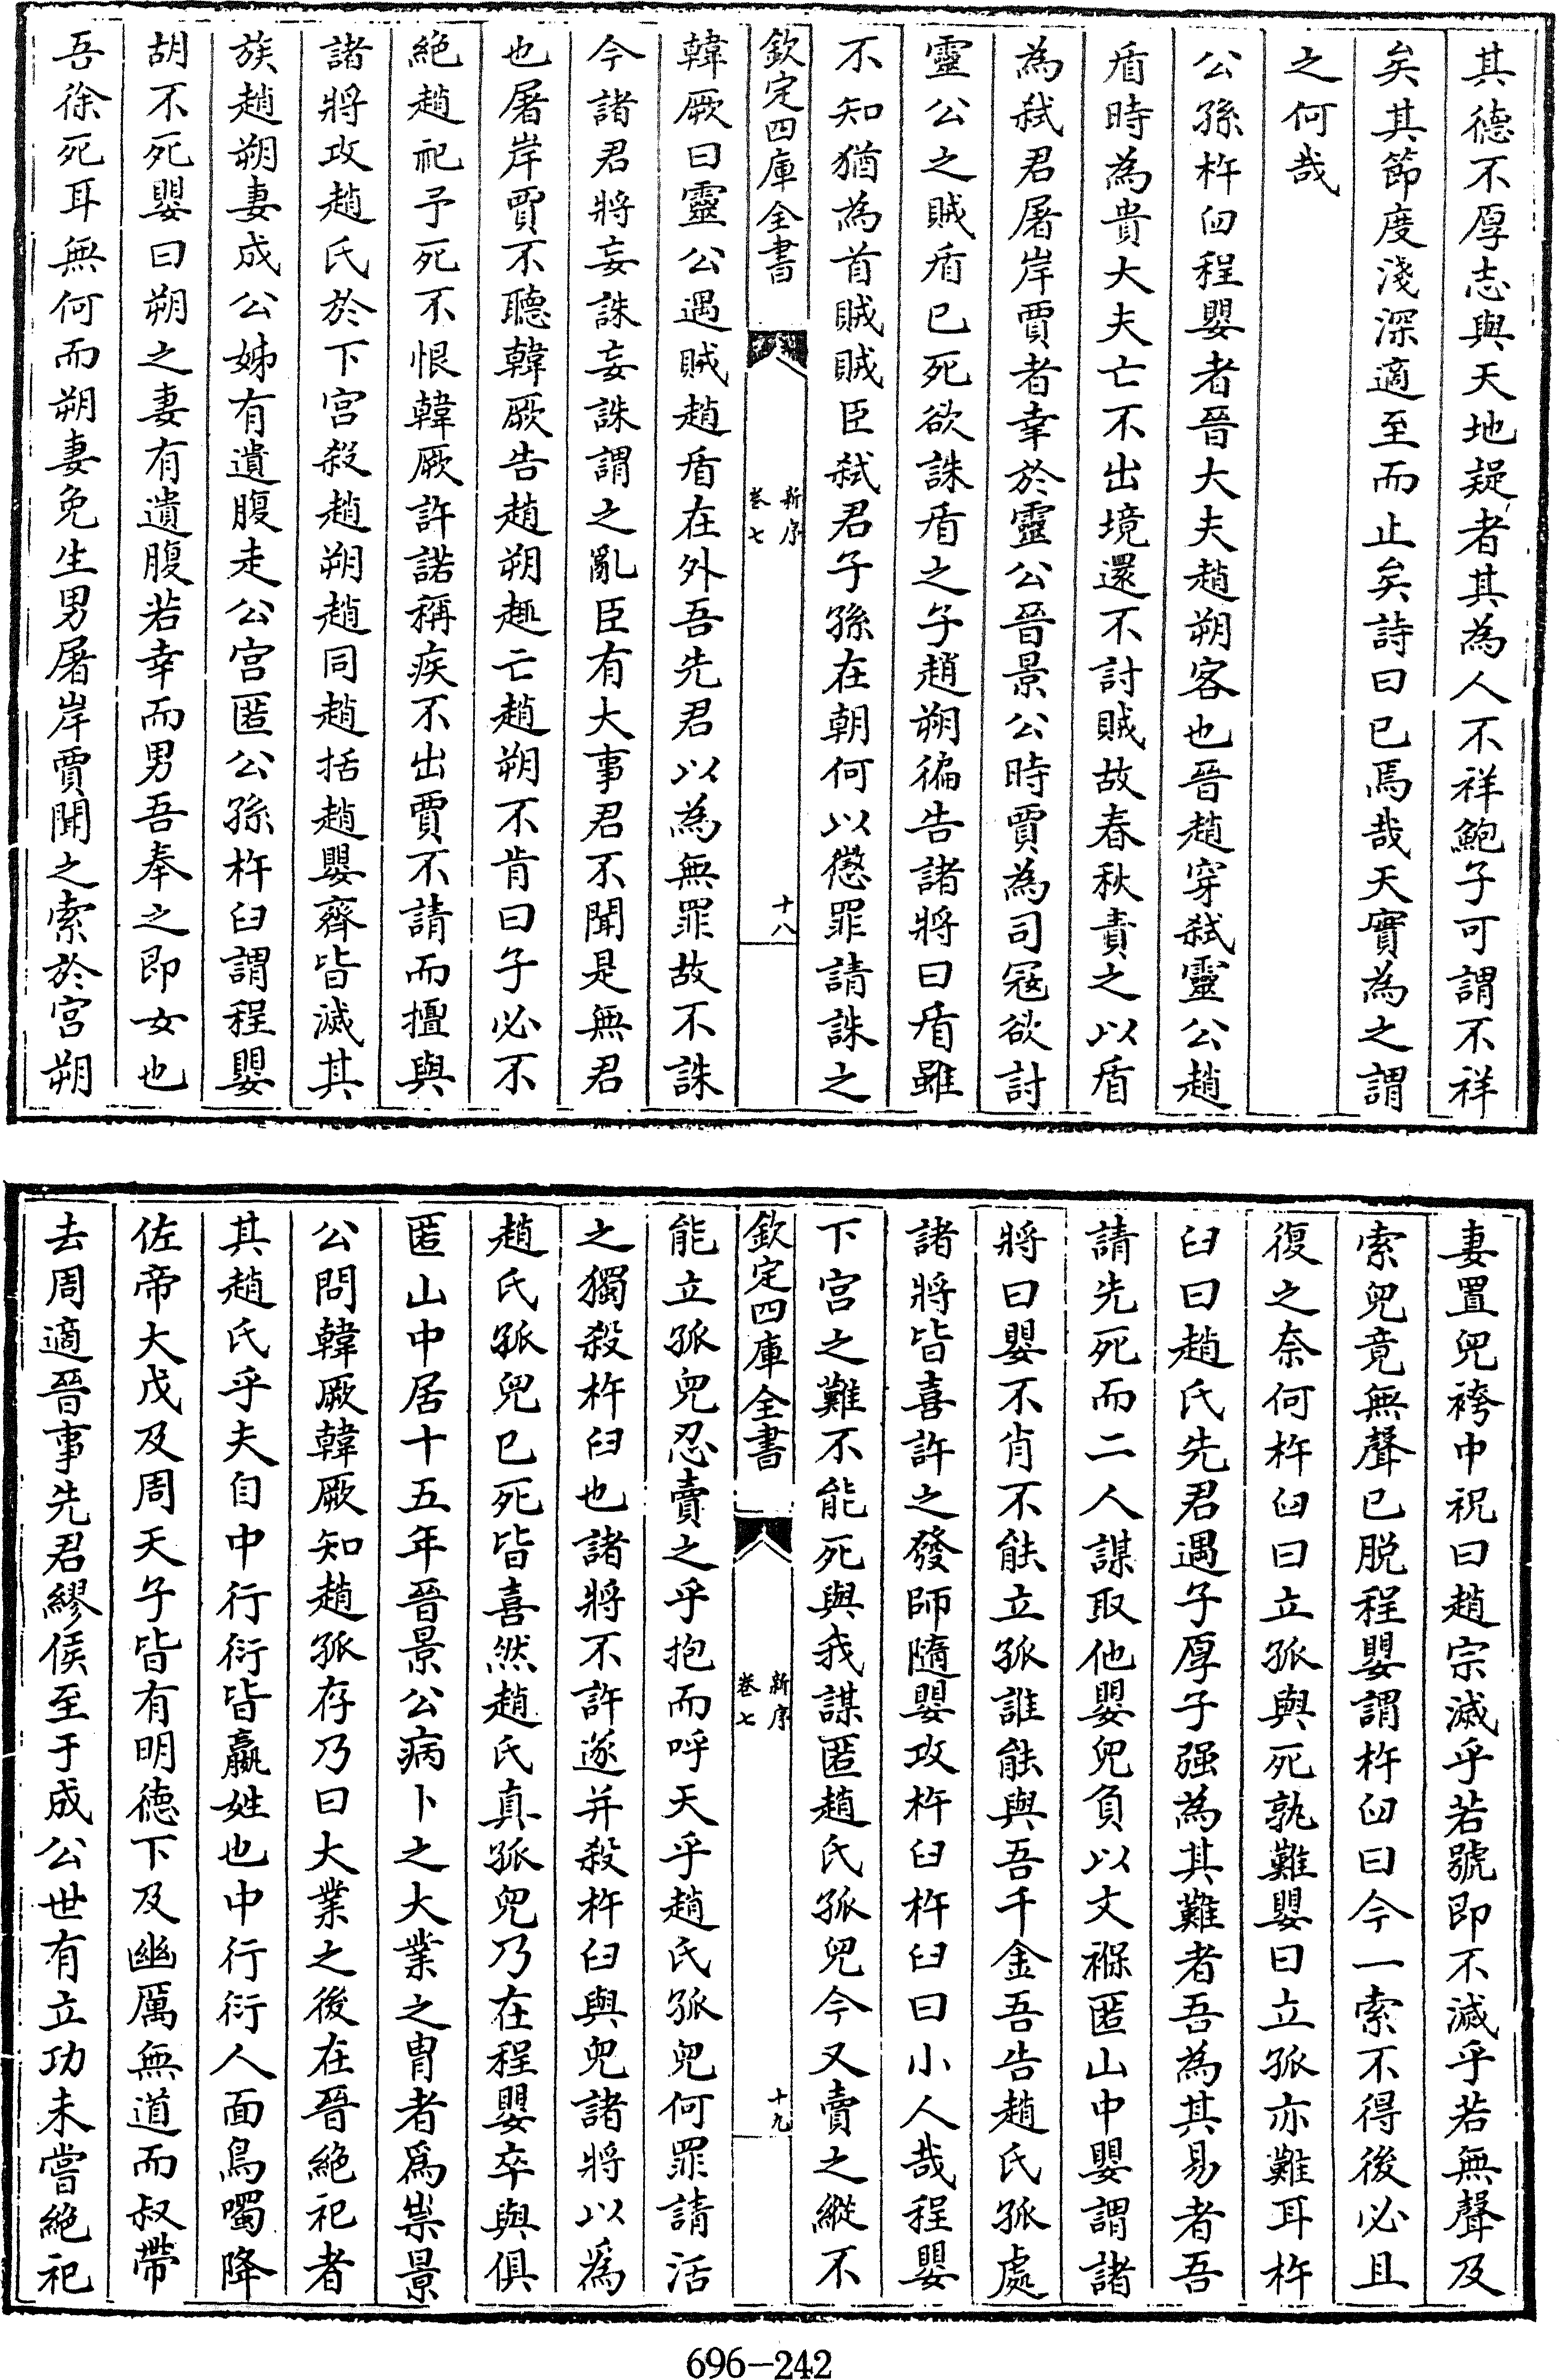 其德不厚志與天地疑者其為人不祥鮑子可謂不祥
矣其節度淺深適至而止矣詩曰已焉哉天實為之謂
之何哉
公孫杵臼程嬰者晉大夫趙朔客也晉趙穿弑靈公趙
盾時為貴大夫亡不出境還不討賊故春秋責之以盾
為弑君屠岸賈者幸於靈公晉景公時賈為司冦欲討
靈公之賊盾已死欲誅盾之子趙朔徧告諸將曰盾雖
不知猶為首賊賊臣弑君子孫在朝何以懲罪請誅之
欽定四庫全書
新序
卷七
十八
韓厥曰靈公遇賊趙盾在外吾先君以為無罪故不誅
今諸君將妄誅妄誅謂之亂臣有大事君不聞是無君
也屠岸賈不聽韓厥告趙朔趣亡趙朔不肯曰子必不
絶趙祀予死不恨韓厥許諾稱疾不出賈不請而擅與
諸將攻趙氏於下宫殺趙朔趙同趙括趙嬰齊皆滅其
族趙朔妻成公姊有遺腹走公宫匿公孫杵臼謂程嬰
胡不死嬰曰朔之妻有遺腹若幸而男吾奉之即女也
吾徐死耳無何而朔妻免生男屠岸賈聞之索於宫朔
妻置兒袴中祝曰趙宗滅乎若號即不滅乎若無聲及
索兒竟無聲已脱程嬰謂杵臼曰今一索不得後必且
復之奈何杵臼曰立孤與死孰難嬰曰立孤亦難耳杵
臼曰趙氏先君遇子厚子强為其難者吾為其易者吾
請先死而二人謀取他嬰兒負以文褓匿山中嬰謂諸
將曰嬰不肖不能立孤誰能與吾千金吾告趙氏孤處
諸將皆喜許之發師隨嬰攻杵臼杵臼曰小人哉程嬰
下宫之難不能死與我謀匿趙氏孤兒今又賣之縱不
欽定四庫全書
新序
卷七
十九
能立孤兒忍賣之乎抱而呼天乎趙氏孤兒何罪請活
之獨殺杵臼也諸將不許遂并殺杵臼與兒諸將以為
趙氏孤兒已死皆喜然趙氏真孤兒乃在程嬰卒與俱
匿山中居十五年晉景公病卜之大業之胄者爲祟景
公問韓厥韓厥知趙孤存乃曰大業之後在晉絶祀者
其趙氏乎夫自中行衍皆嬴姓也中行衍人面鳥噣降
佐帝大戊及周天子皆有明德下及幽厲無道而叔帶
去周適晉事先君繆侯至于成公世有立功未嘗絶祀
696-242